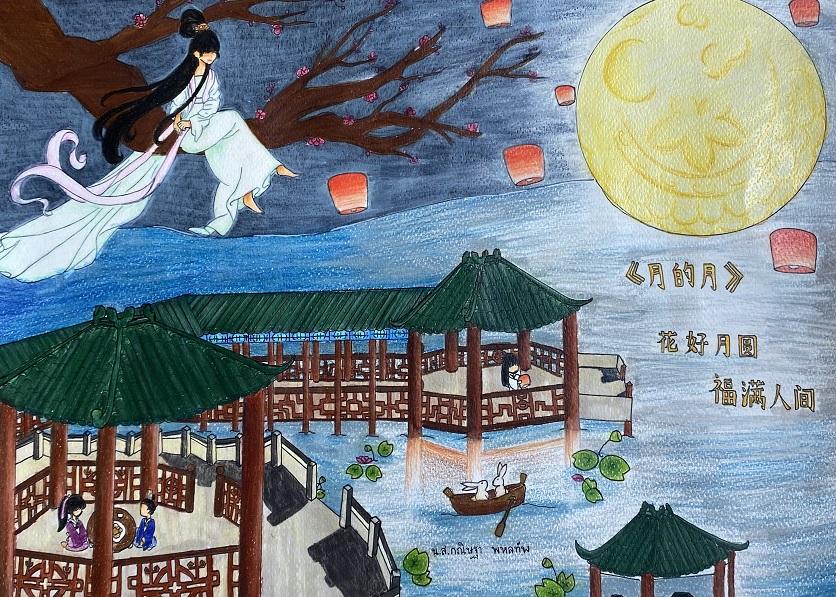 《月的月》
花好月圆
福满人间
น.ส.กณิษฐา พหลทัพ